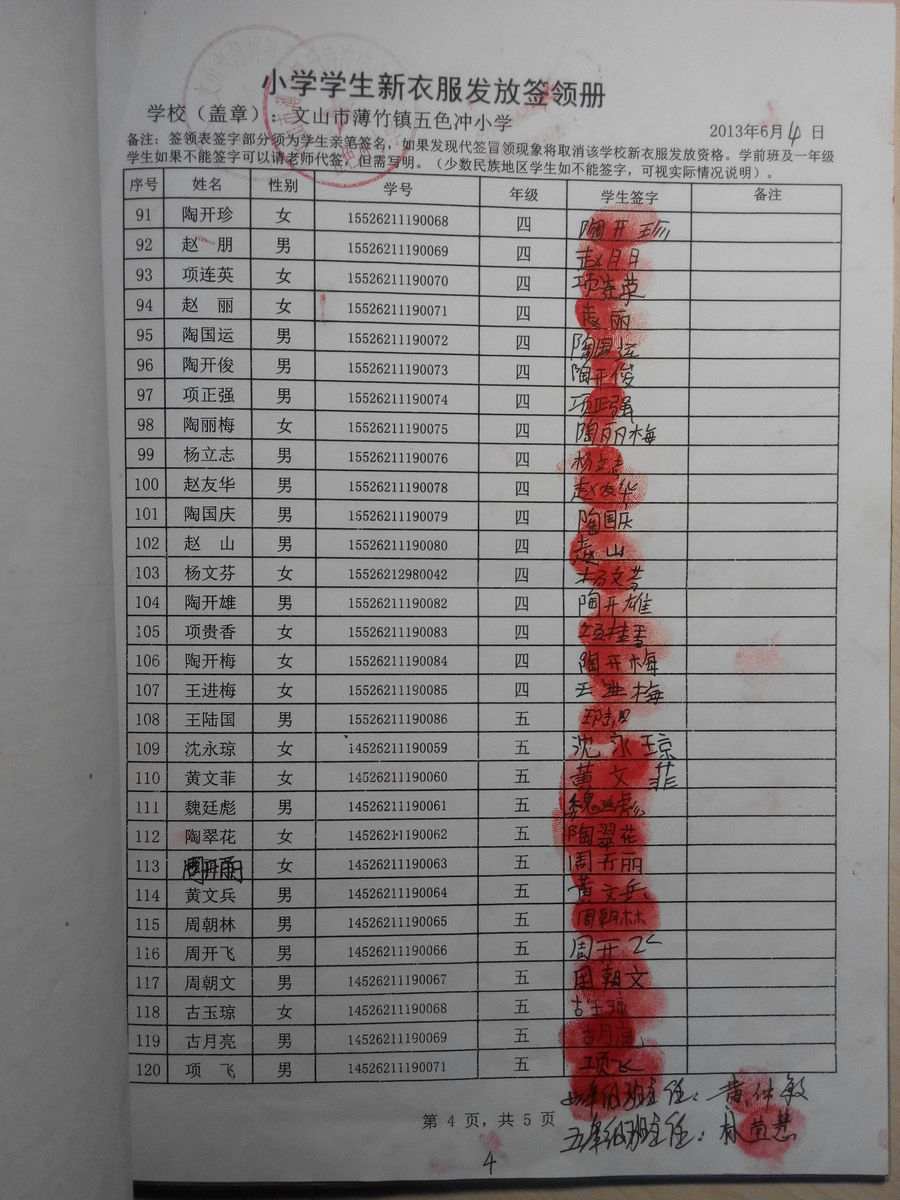 小学学生新衣服发放签领册
学校（盖章）：文山市薄竹镇五色冲小学 2013年6月4日
备注：签领表签字部分须为学生亲笔签名，如果发现代签冒领现象将取消该学校新衣服发放资格。学前班及一年级
学生如果不能签字可以请老师代签，但需写明。（少数民族地区学生如不能签字，可视实际情况说明）。
序号 姓名 性别 学号 年级 学生签字 备注
91 陶开珍 女 15526211190068 四 陶开珍
92 赵 朋 男 15526211190069 四 赵朋
93 项连英 女 15526211190070 四 项连英
94 赵 丽 女 15526211190071 四 赵丽
95 陶国运 男 15526211190072 四 陶国运
96 陶开俊 男 15526211190073 四 陶开俊
97 项正强 男 15526211190074 四 项正强
98 陶丽梅 女 15526211190075 四 陶丽梅
99 杨立志 男 15526211190076 四 杨立志
100 赵友华 男 15526211190078 四 赵友华
101 陶国庆 男 15526211190079 四 陶国庆
102 赵 山 男 15526211190080 四 赵山
103 杨文芬 女 15526212980042 四 杨文芬
104 陶开雄 男 15526211190082 四 陶开雄
105 项贵香 女 15526211190083 四 项桂香
106 陶开梅 女 15526211190084 四 陶开梅
107 王进梅 女 15526211190085 四 王进梅
108 王陆国 男 15526211190086 五 王陆国
109 沈永琼 女 14526211190059 五 沈永琼
110 黄文菲 女 14526211190060 五 黄文菲
111 魏廷彪 男 14526211190061 五 魏廷彪
112 陶翠花 女 14526211190062 五 陶翠花
113 周开丽 女 14526211190063 五 周开丽
114 黄文兵 男 14526211190064 五 黄文兵
115 周朝林 男 14526211190065 五 周朝林
116 周开飞 男 14526211190066 五 周开飞
117 周朝文 男 14526211190067 五 周朝文
118 古玉琼 女 14526211190068 五 古玉琼
119 古月亮 男 14526211190069 五 古月亮
120 项 飞 男 14526211190071 五 项飞
四年级班主任：黄仲敏
第 4 页，共 5 页
五年级班主任：林莹慧
4